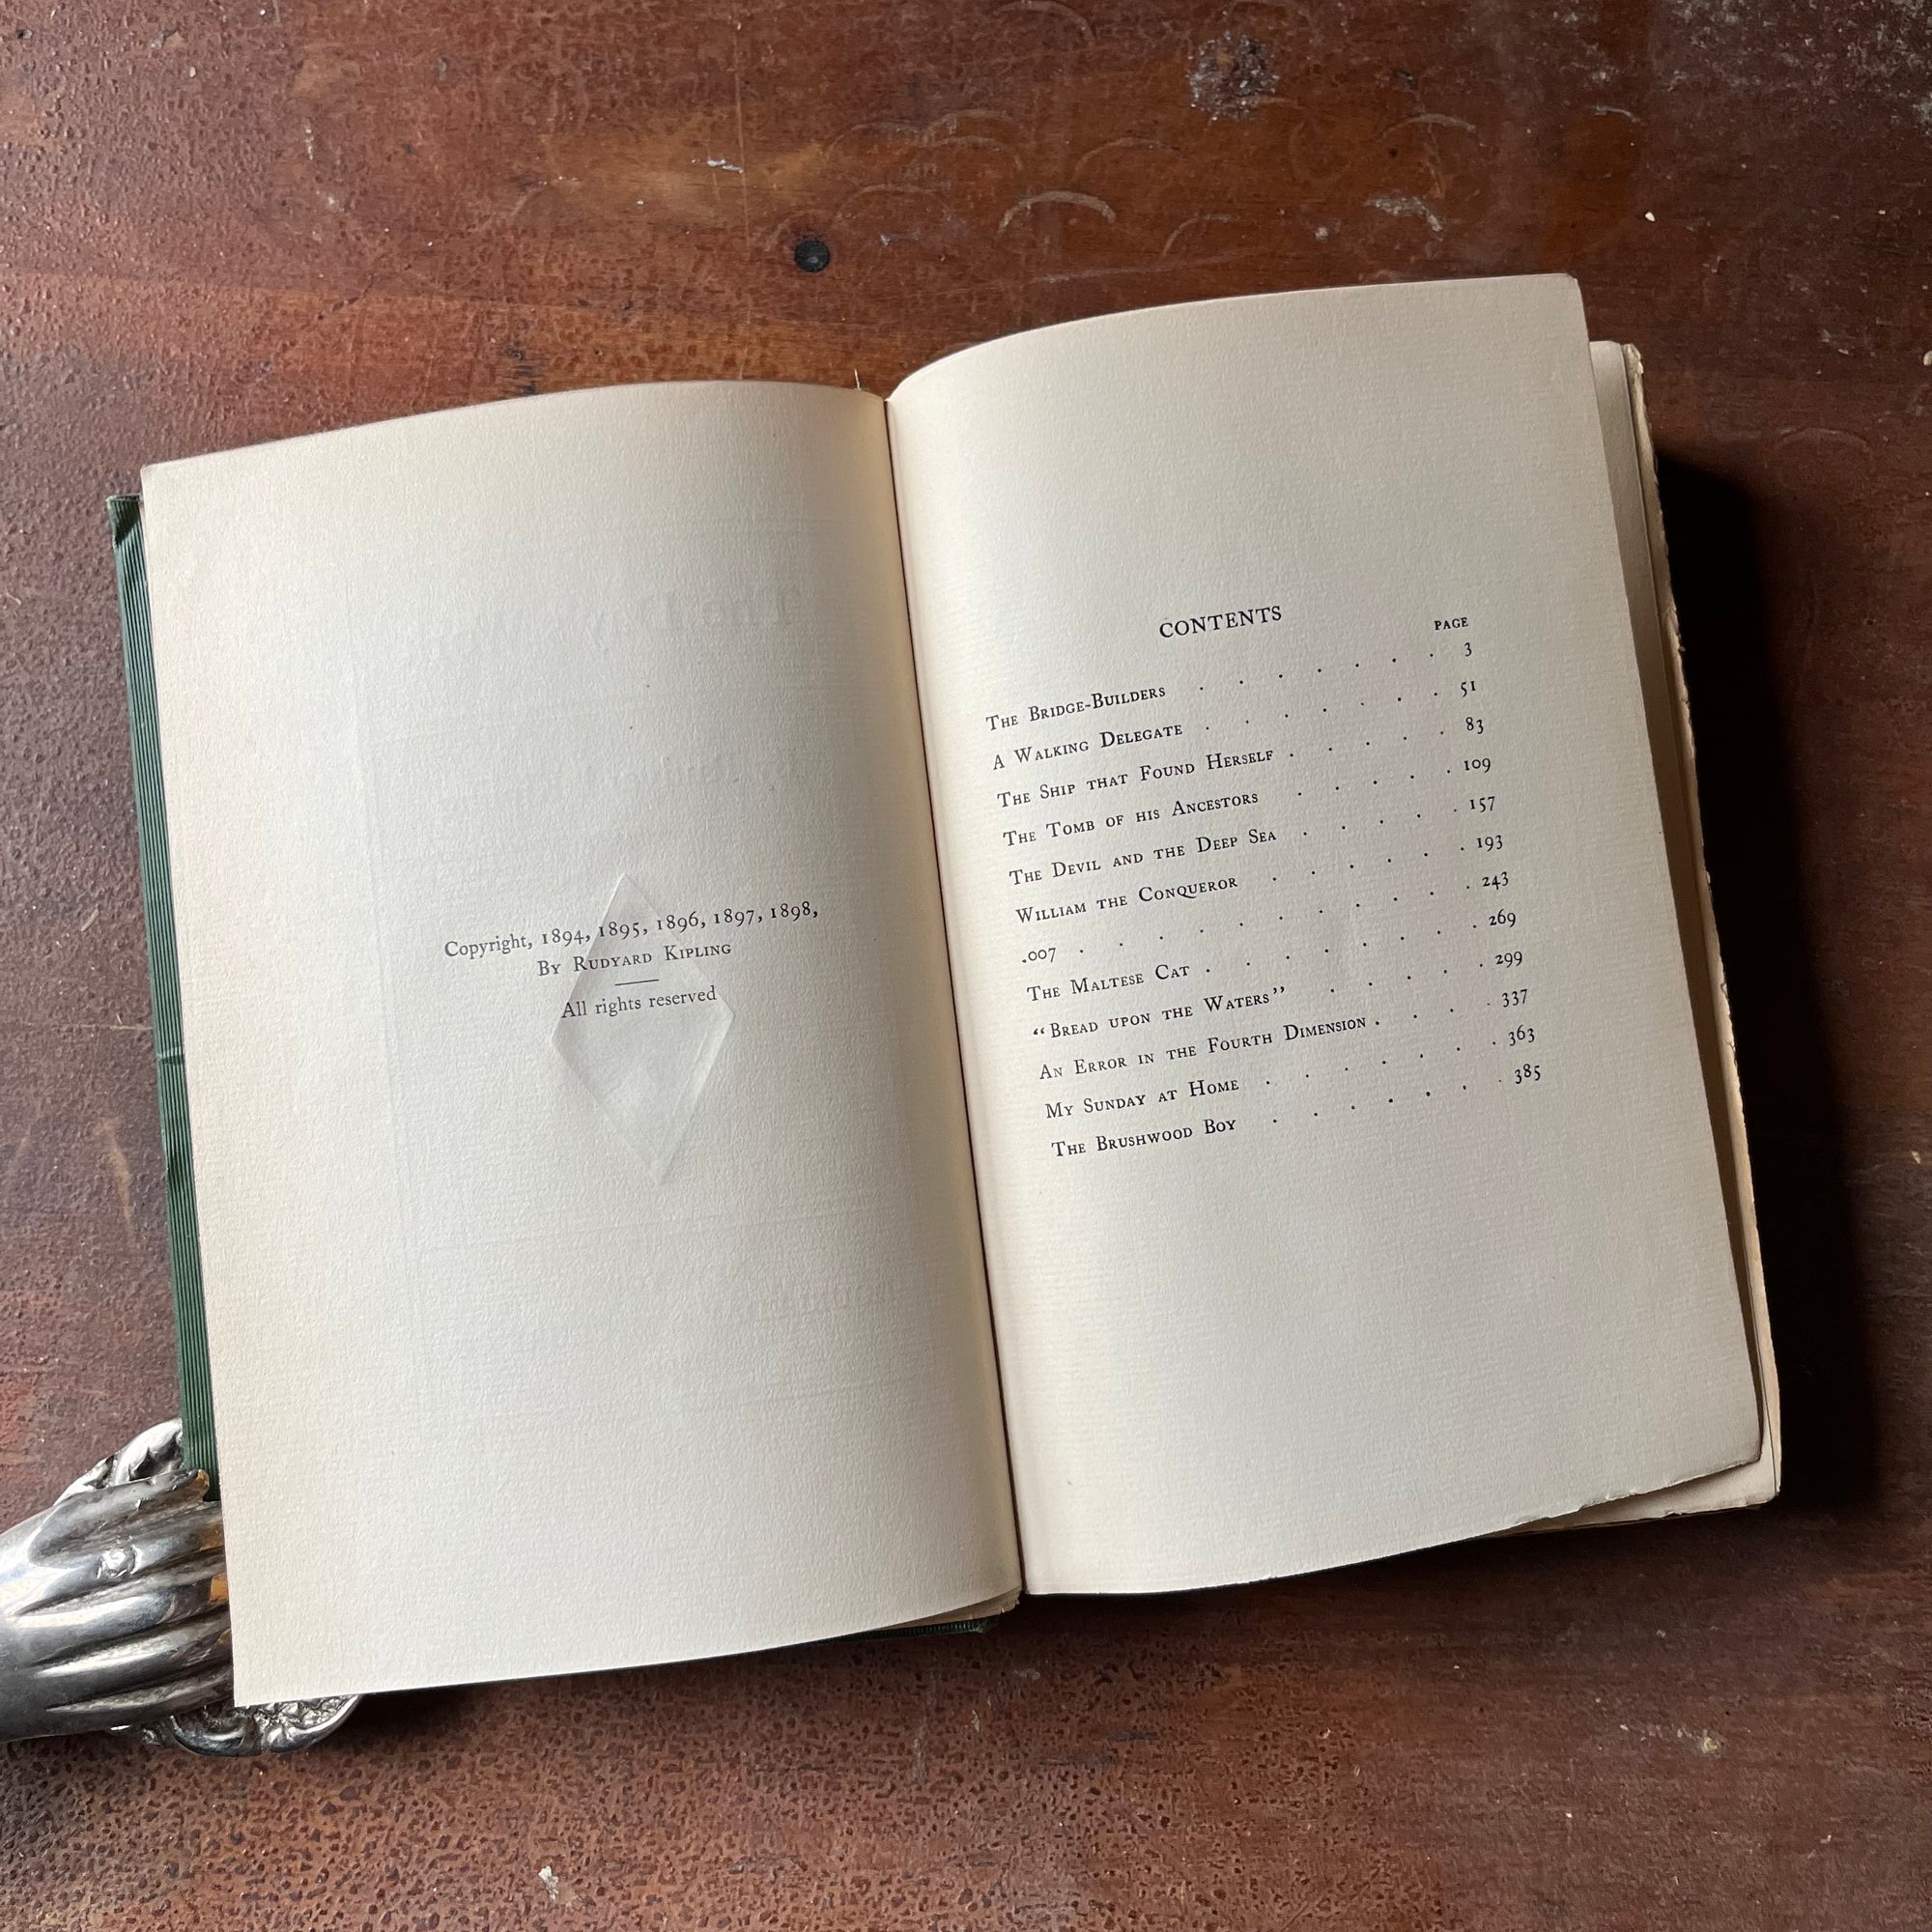 Copyright, 1894, 1895, 1896, 1897, 1898,
By Rudyard Kipling
All rights reserved
CONTENTS
PAGE
The Bridge-Builders . . . . . . . 3
A Walking Delegate . . . . . . . 51
The Ship that Found Herself . . . . . 83
The Tomb of his Ancestors . . . . . 109
The Devil and the Deep Sea . . . . . 157
William the Conqueror . . . . . . 193
.007 . . . . . . . . . . . 243
The Maltese Cat . . . . . . . . 269
“Bread upon the Waters” . . . . . 299
An Error in the Fourth Dimension . . . . 337
My Sunday at Home . . . . . . . 363
The Brushwood Boy . . . . . . . 385